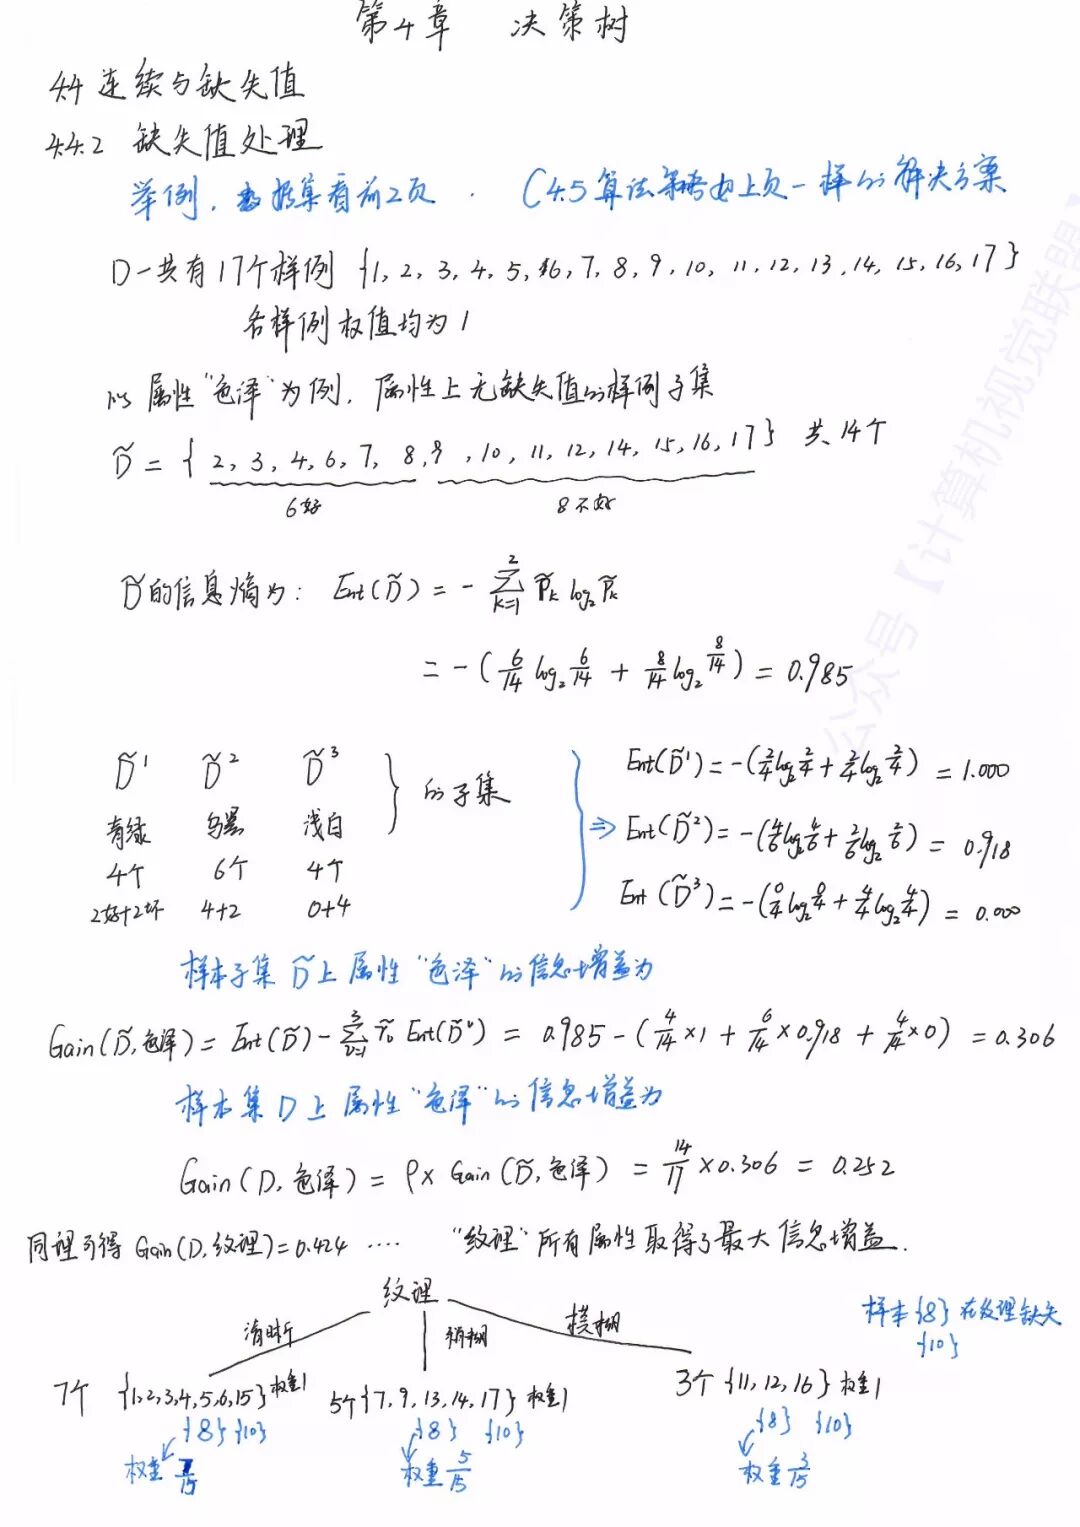 第4章 决策树
4.4 连续与缺失值
4.4.2 缺失值处理
举例，数据集看前2页. C4.5算法 上页一样的解决方案
D一共有17个样例 {1, 2, 3, 4, 5, 6, 7, 8, 9, 10, 11, 12, 13, 14, 15, 16, 17}
各样例权值均为1
以属性"色泽"为例，属性上无缺失值的样例子集
D̃ = { 2, 3, 4, 6, 7, 8, 9, 10, 11, 12, 14, 15, 16, 17} 共14个
6好 8不好
D̃的信息熵为: Ent(D̃) = - ∑_{k=1}^{2} p̃ₖ log₂ p̃ₖ
= -(6/14 log₂ 6/14 + 8/14 log₂ 8/14) = 0.985
D̃¹ D̃² D̃³ } 的子集
青绿 乌黑 浅白
4个 6个 4个
2好+2坏 4+2 0+4
⇒ Ent(D̃¹) = -(2/4 log₂ 2/4 + 2/4 log₂ 2/4) = 1.000
Ent(D̃²) = -(4/6 log₂ 4/6 + 2/6 log₂ 2/6) = 0.918
Ent(D̃³) = -(0/4 log₂ 0/4 + 4/4 log₂ 4/4) = 0.000
样本子集D̃上属性"色泽"的信息增益为
Gain(D̃, 色泽) = Ent(D̃) - ∑_{v=1}^{3} r̃ᵥ Ent(D̃ᵛ) = 0.985 - (4/14 × 1 + 6/14 × 0.918 + 4/14 × 0) = 0.306
样本集D上属性"色泽"的信息增益为
Gain(D, 色泽) = ρ × Gain(D̃, 色泽) = 14/17 × 0.306 = 0.252
同理可得 Gain(D, 纹理) = 0.424 .... "纹理"所有属性取得了最大信息增益.
纹理
清晰 稍糊 模糊
样本{8}在纹理缺失
{10}
7个 {1,2,3,4,5,6,15} 权重1 5个{7, 9, 13, 14, 17} 权重1 3个{11, 12, 16} 权重1
{8} {10} {8} {10} {8} {10}
权重 7/15 权重 5/15 权重 3/15
公众号【计算机视觉联盟】